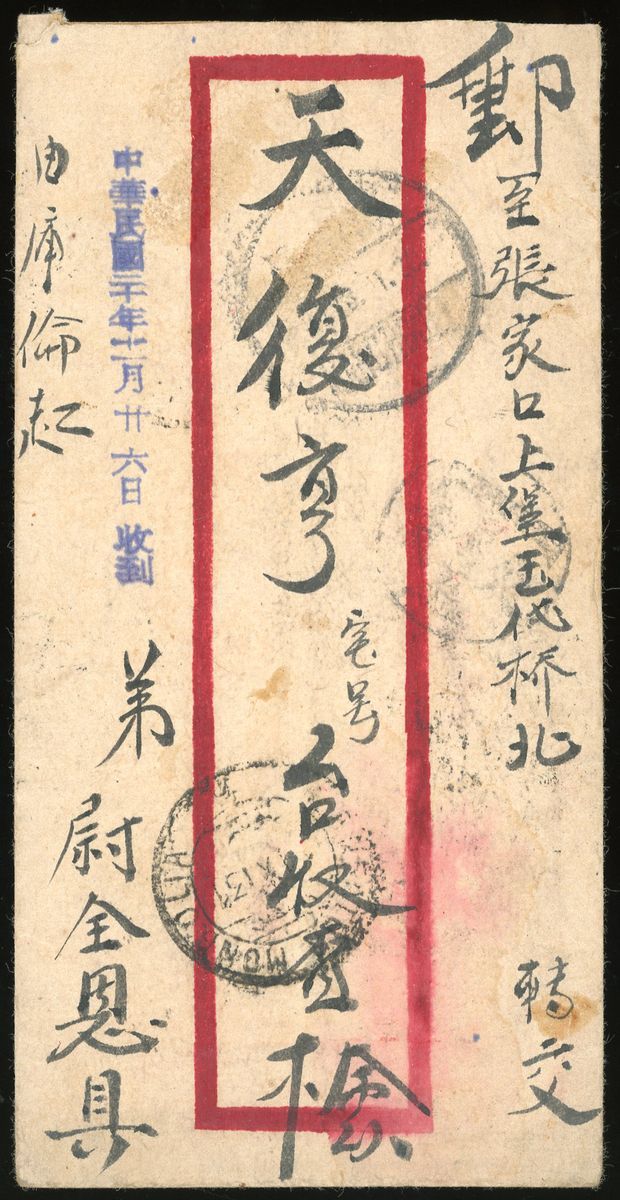 郵至張家口上堡玉代桥北
轉交
天復亨
宅号
台收查檢
中華民國二十年十一月廿六日收到
弟
尉全恩具
由庫倫起
MON